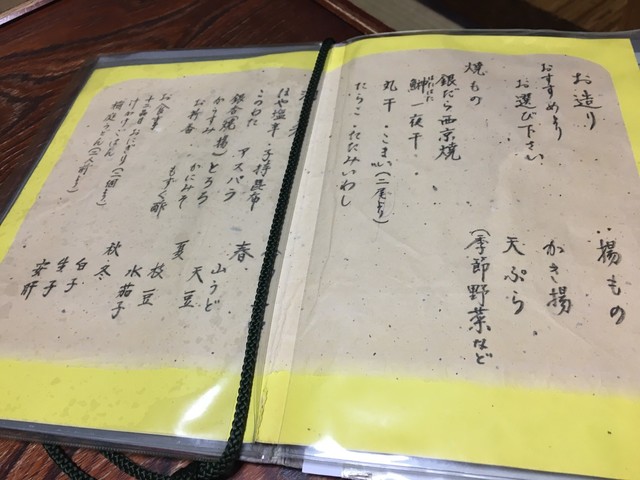 お造り
おすすめより
お選び下さい
焼もの
銀だら西京焼
鰰一夜干
はたはた
丸干・こまい(二尾より)
たらこ たたみいわし
揚もの
かき揚
天ぷら
(季節野菜など)
このわた
子持昆布
銀杏(焼・揚) アスパラ
からすみ とろろ
お新香 かにみそ
もずく酢
お食事
(一個より)
稲庭うどん(一人前より)
春
山うど
天豆
夏
枝豆
水茄子
秋・冬
白子
生子
安肝